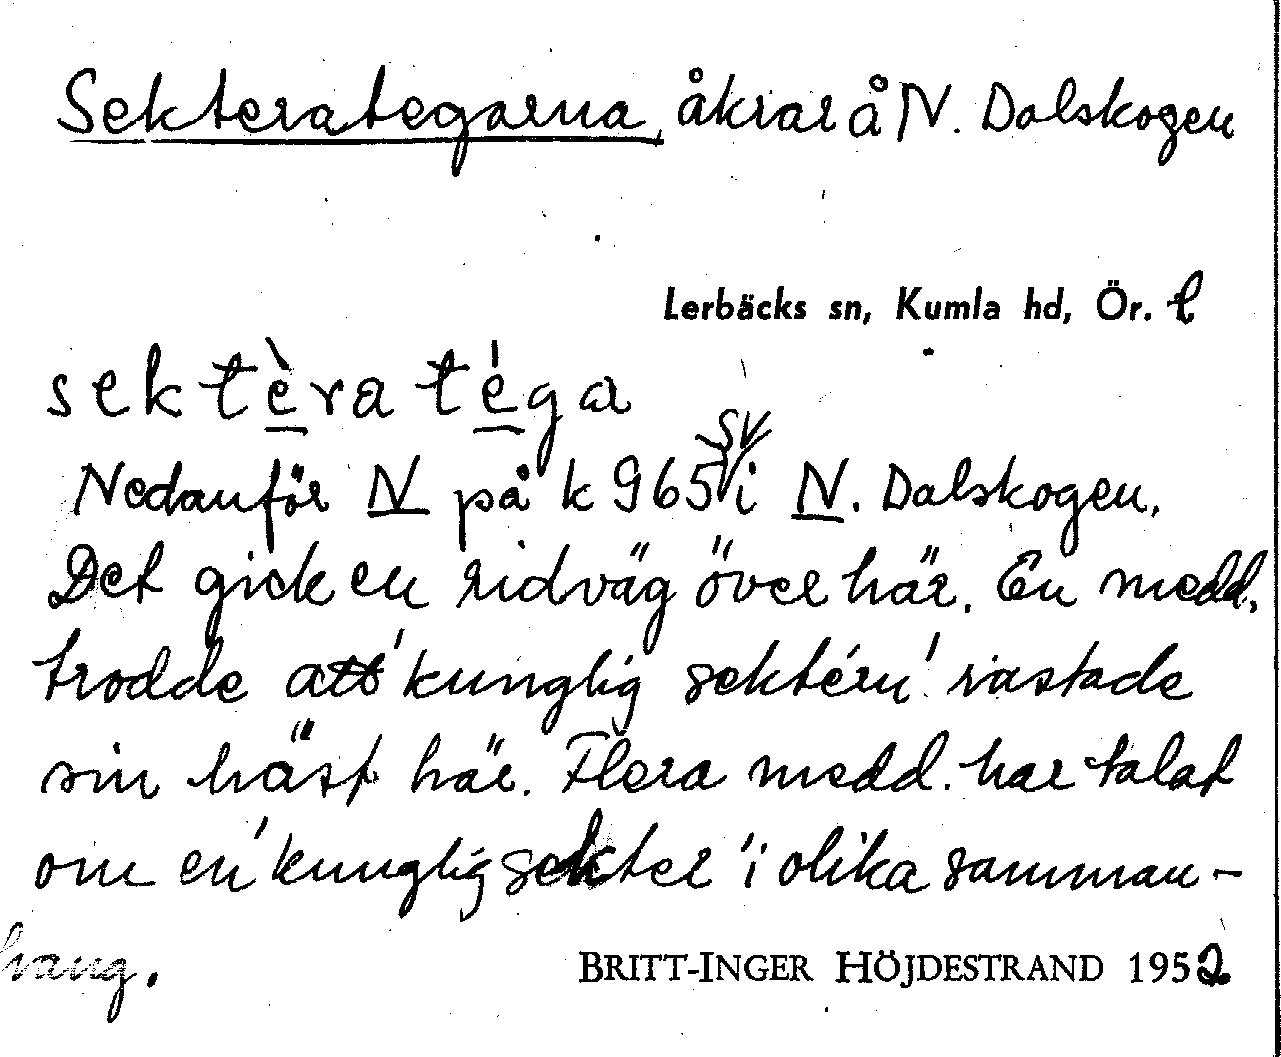 Sekterategarna, åkrar å N. Dalskogen
Lerbäcks sn, Kumla hd, Ör. l
sektèra téga
SV
Nedanför N på k 965 i N. Dalskogen.
Det gick en ridväg över här. En medd.
trodde att 'kunglig sektérn' rastade
sin häst här. Flera medd. har talat
om en 'kunglig sekter' i olika samman-
hang.
BRITT-INGER HÖJDESTRAND 1952